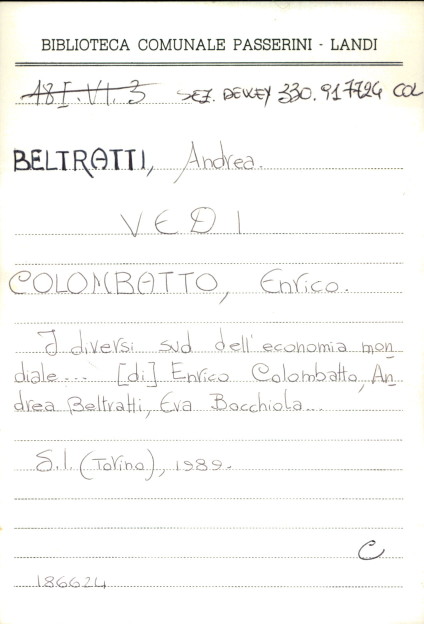 BIBLIOTECA COMUNALE PASSERINI - LANDI
18 I. VI. 3 SEZ. DEWEY 330.917724 COL
BELTRATTI, Andrea.
VEDI
COLOMBATTO, Enrico.
I diversi sud dell'economia mon
diale... [di] Enrico Colombatto, An
drea Beltratti, Eva Bocchiola...
S.l. (Torino), 1989.
C
186624